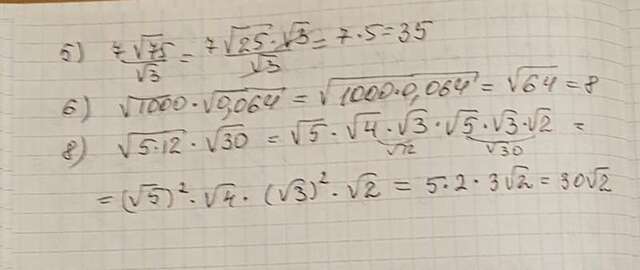 5) 7√75/√3 = 7√25·√3/√3 = 7·5=35
6) √1000·√0,064 = √1000·0,064 = √64 = 8
8) √5·12 · √30 = √5 · √4 · √3 · √5 · √3 · √2 =
√12 √30
= (√5)² · √4 · (√3)² · √2 = 5·2·3√2 = 30√2